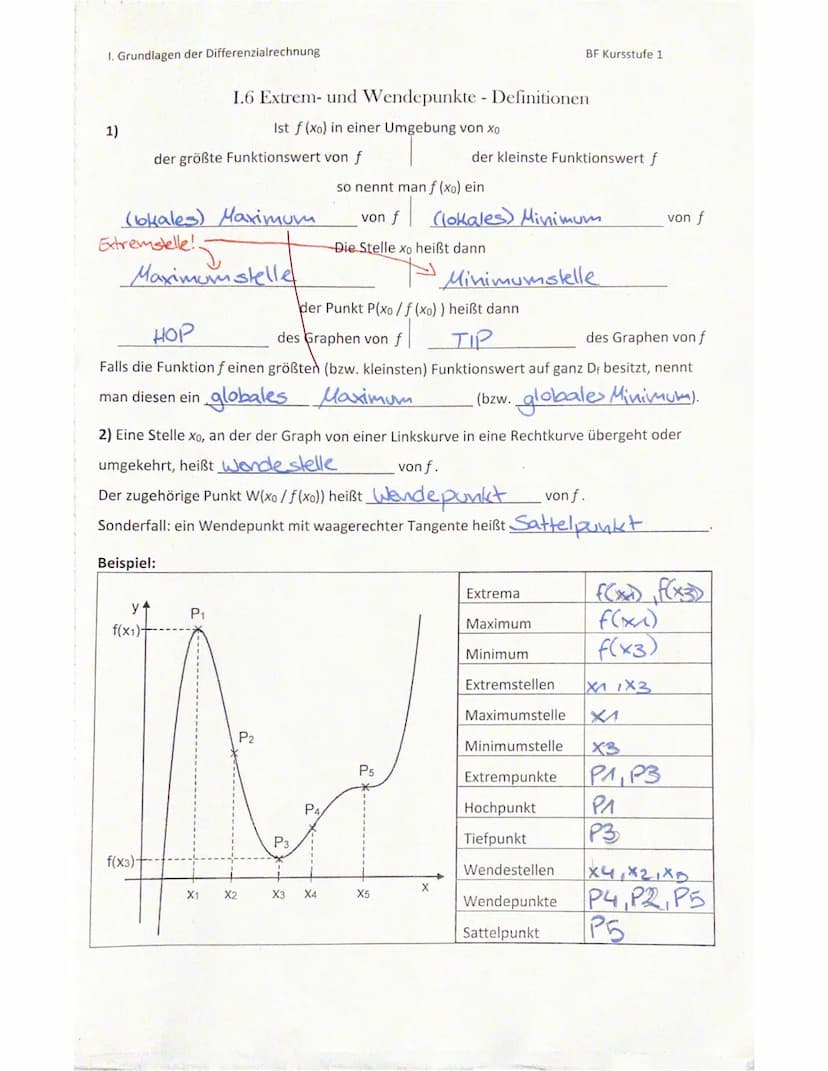 I. Grundlagen der Differenzialrechnung BF Kursstufe 1
I.6 Extrem- und Wendepunkte - Definitionen
1) Ist f (x0) in einer Umgebung von x0
der größte Funktionswert von f der kleinste Funktionswert f
so nennt man f (x0) ein
(lokales) Maximum von f (lokales) Minimum von f
Extremstelle! Die Stelle x0 heißt dann
Maximumstelle Minimumstelle
der Punkt P(x0 / f (x0) ) heißt dann
HOP des Graphen von f TIP des Graphen von f
Falls die Funktion f einen größten (bzw. kleinsten) Funktionswert auf ganz Df besitzt, nennt
man diesen ein globales Maximum (bzw. globales Minimum).
2) Eine Stelle x0, an der der Graph von einer Linkskurve in eine Rechtkurve übergeht oder
umgekehrt, heißt Wendestelle von f.
Der zugehörige Punkt W(x0 / f(x0)) heißt Wendepunkt von f.
Sonderfall: ein Wendepunkt mit waagerechter Tangente heißt Sattelpunkt.
Beispiel:
y
f(x1)
P1
P2
P5
P4
P3
f(x3)
X1 X2 X3 X4 X5 X
Extrema f(x1), f(x3)
Maximum f(x1)
Minimum f(x3)
Extremstellen x1, x3
Maximumstelle x1
Minimumstelle x3
Extrempunkte P1, P3
Hochpunkt P1
Tiefpunkt P3
Wendestellen x4, x2, x5
Wendepunkte P4, P2, P5
Sattelpunkt P5